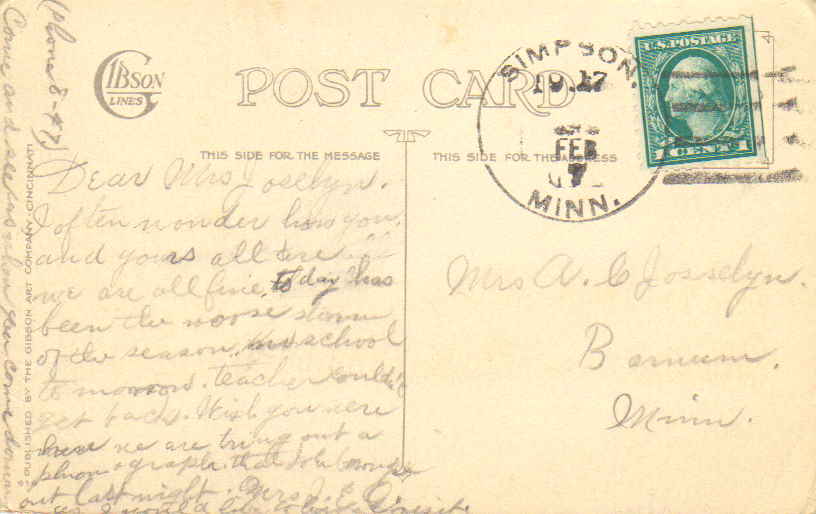 (phone 8-47)
Come and see us when you come down
GIBSON
LINES
POST CARD
THIS SIDE FOR THE MESSAGE
THIS SIDE FOR THE ADDRESS
SIMPSON,
1917
FEB
7
MINN.
U.S. POSTAGE
1 CENT 1
PUBLISHED BY THE GIBSON ART COMPANY, CINCINNATI
Dear Mrs Joselyn.
I often wonder how you
and yours all are
we are all fine, today has
been the worse storm
of the season, no school
to morrow. teacher couldn't
get back. Wish you were
here we are trying out a
phonograph that John brought
out last night. Mrs J.
as I would like to have a visit.
Mrs A. C Josselyn.
Barnum.
Minn.